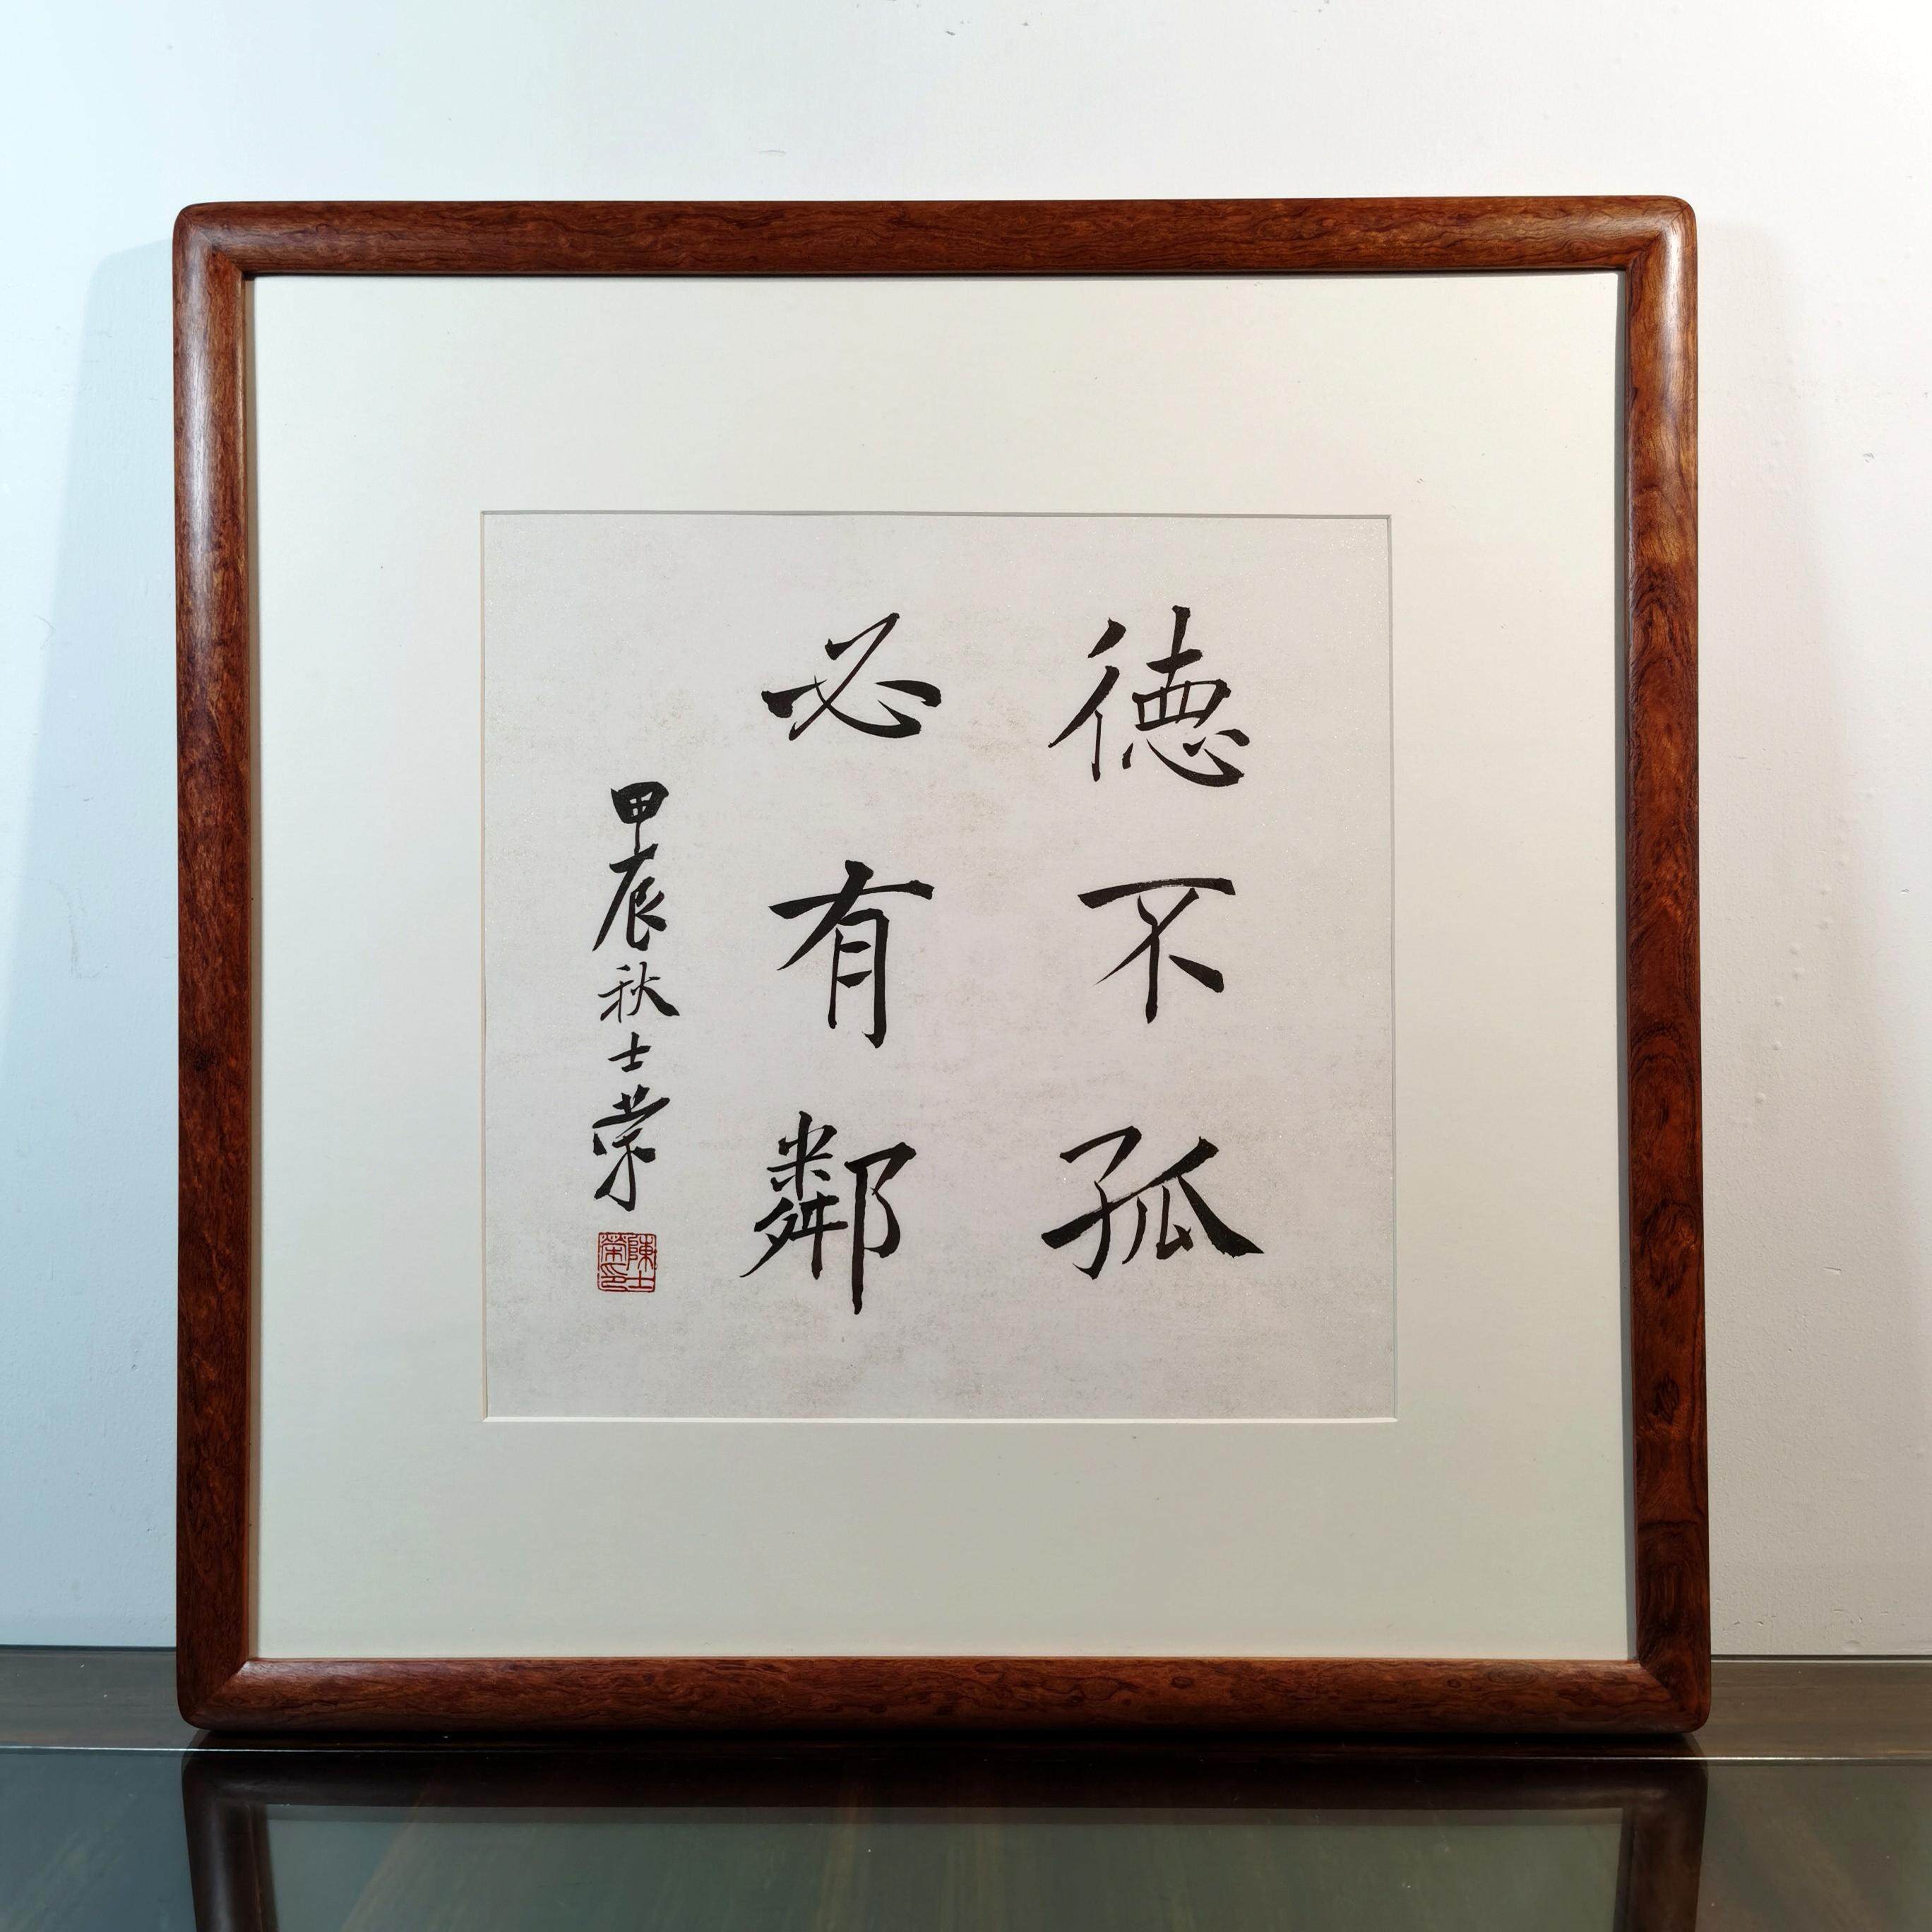 德不孤
必有鄰
甲辰秋士荣
陳士
榮印